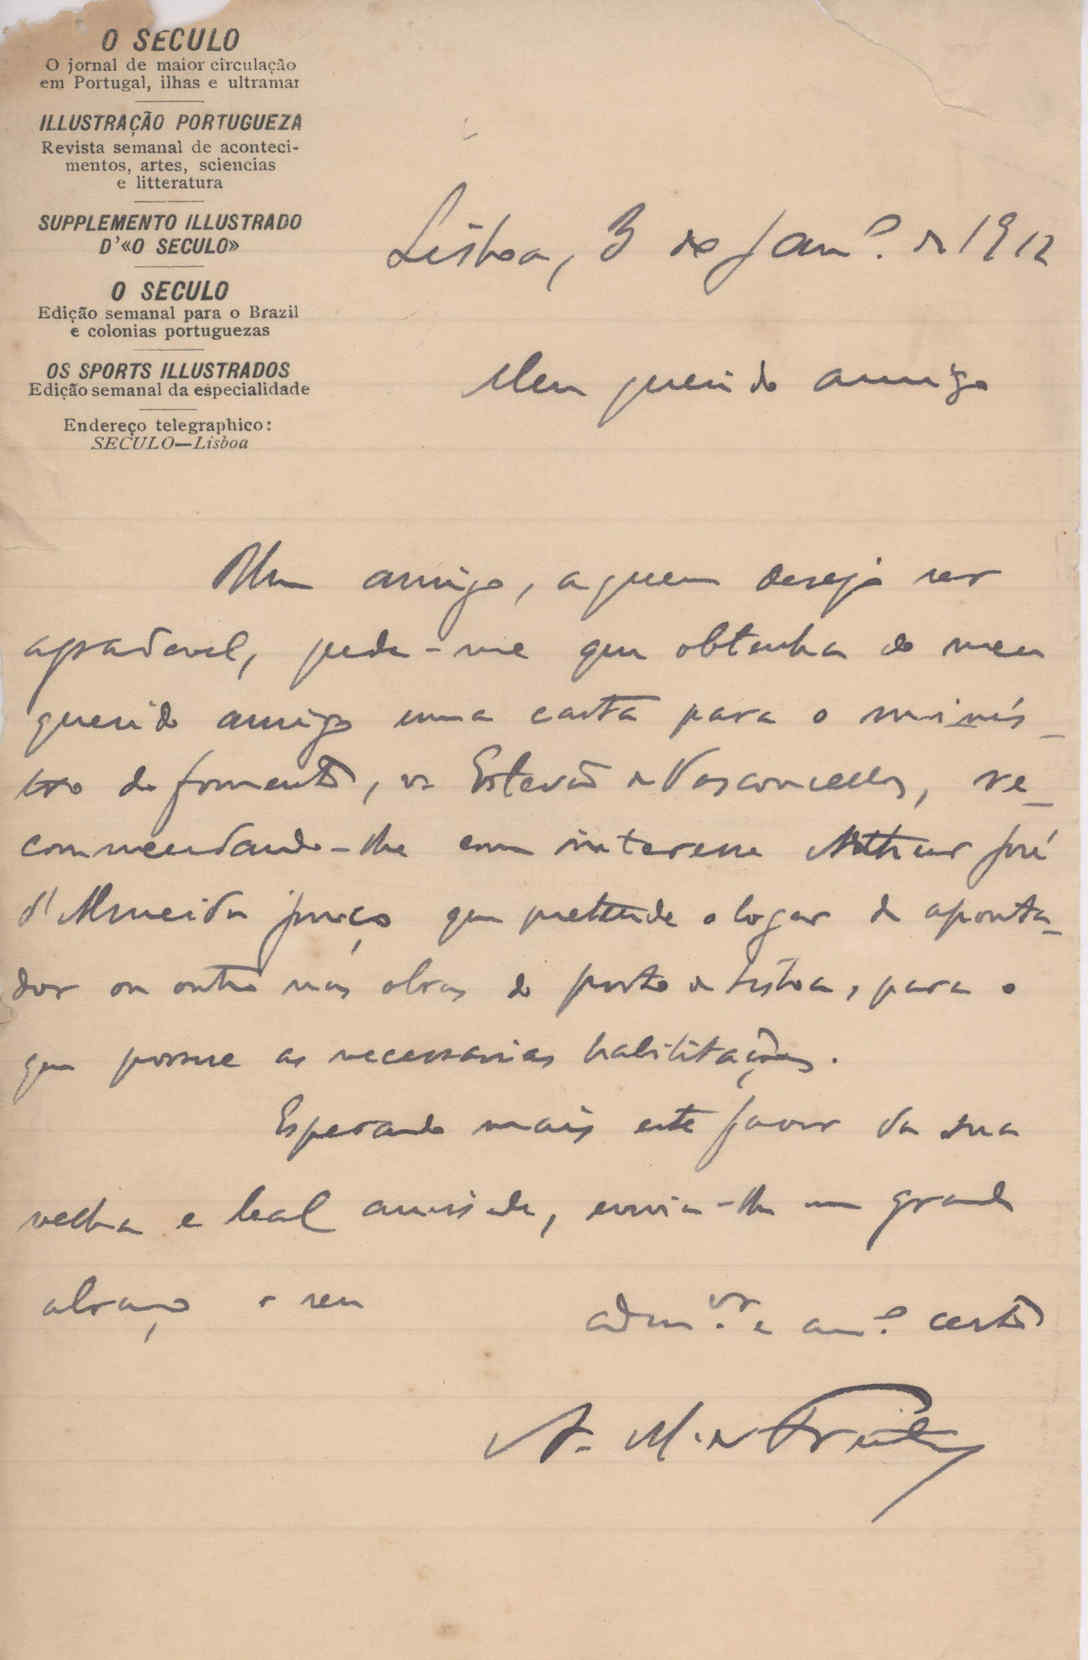 O SECULO
O jornal de maior circulação
em Portugal, ilhas e ultramar
ILLUSTRAÇÃO PORTUGUEZA
Revista semanal de aconteci-
mentos, artes, sciencias
e litteratura
SUPPLEMENTO ILLUSTRADO
D'«O SECULO»
O SECULO
Edição semanal para o Brazil
e colonias portuguezas
OS SPORTS ILLUSTRADOS
Edição semanal da especialidade
Endereço telegraphico:
SECULO—Lisboa
Lisboa, 3 de Jan.º de 1912
Meu querido amigo
Um amigo, a quem desejo ser
agradavel, pede-me que obtenha do meu
querido amigo uma carta para o minis-
tro do fomento, Estevão de Vasconcellos, re-
commendando-lhe com interesse Arthur José
d'Almeida que pretende o logar de aponta-
dor ou outro nas obras do porto de Lisboa, para o
que possue as necessarias habilitações.
Esperando mais este favor da sua
velha e leal amisade, envia-lhe um grande
abraço o seu
adm.ºr e am.º certo
A. M. de Freitas